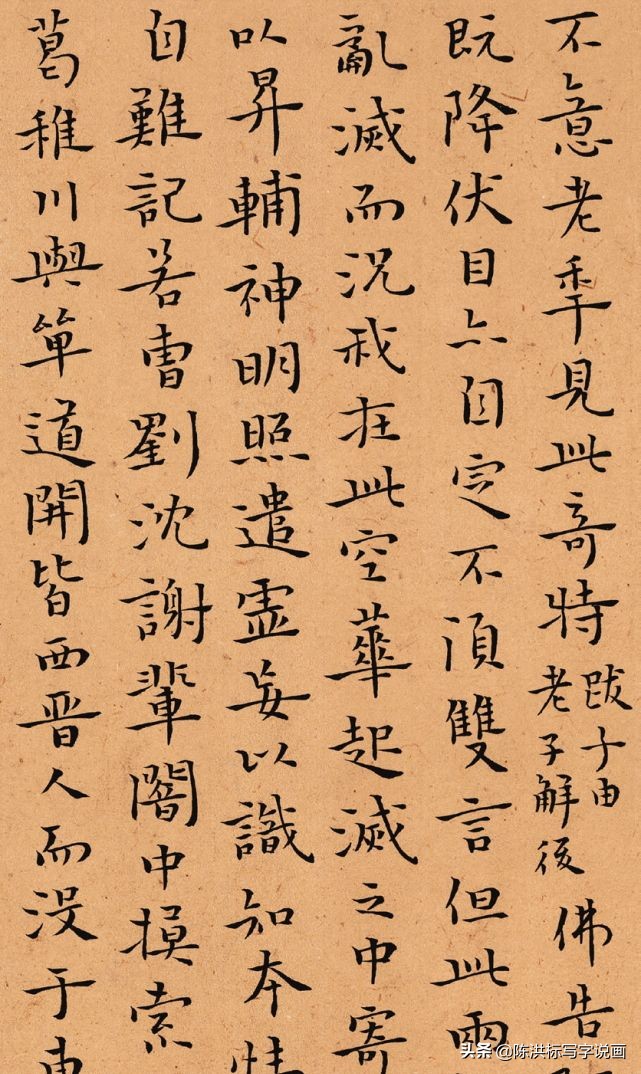 不意老秊見此奇特
跋子由
老子解後
佛告
既降伏目亦自定不湏雙言但此兩
亂滅而況我在此空華起滅之中寄
以昇輔神明照遣虛妄以識知本
自難記若曹劉沈謝輩闇中摸索
葛稚川與單道開皆西晉人而没于東
头条 @陈洪标写字说画